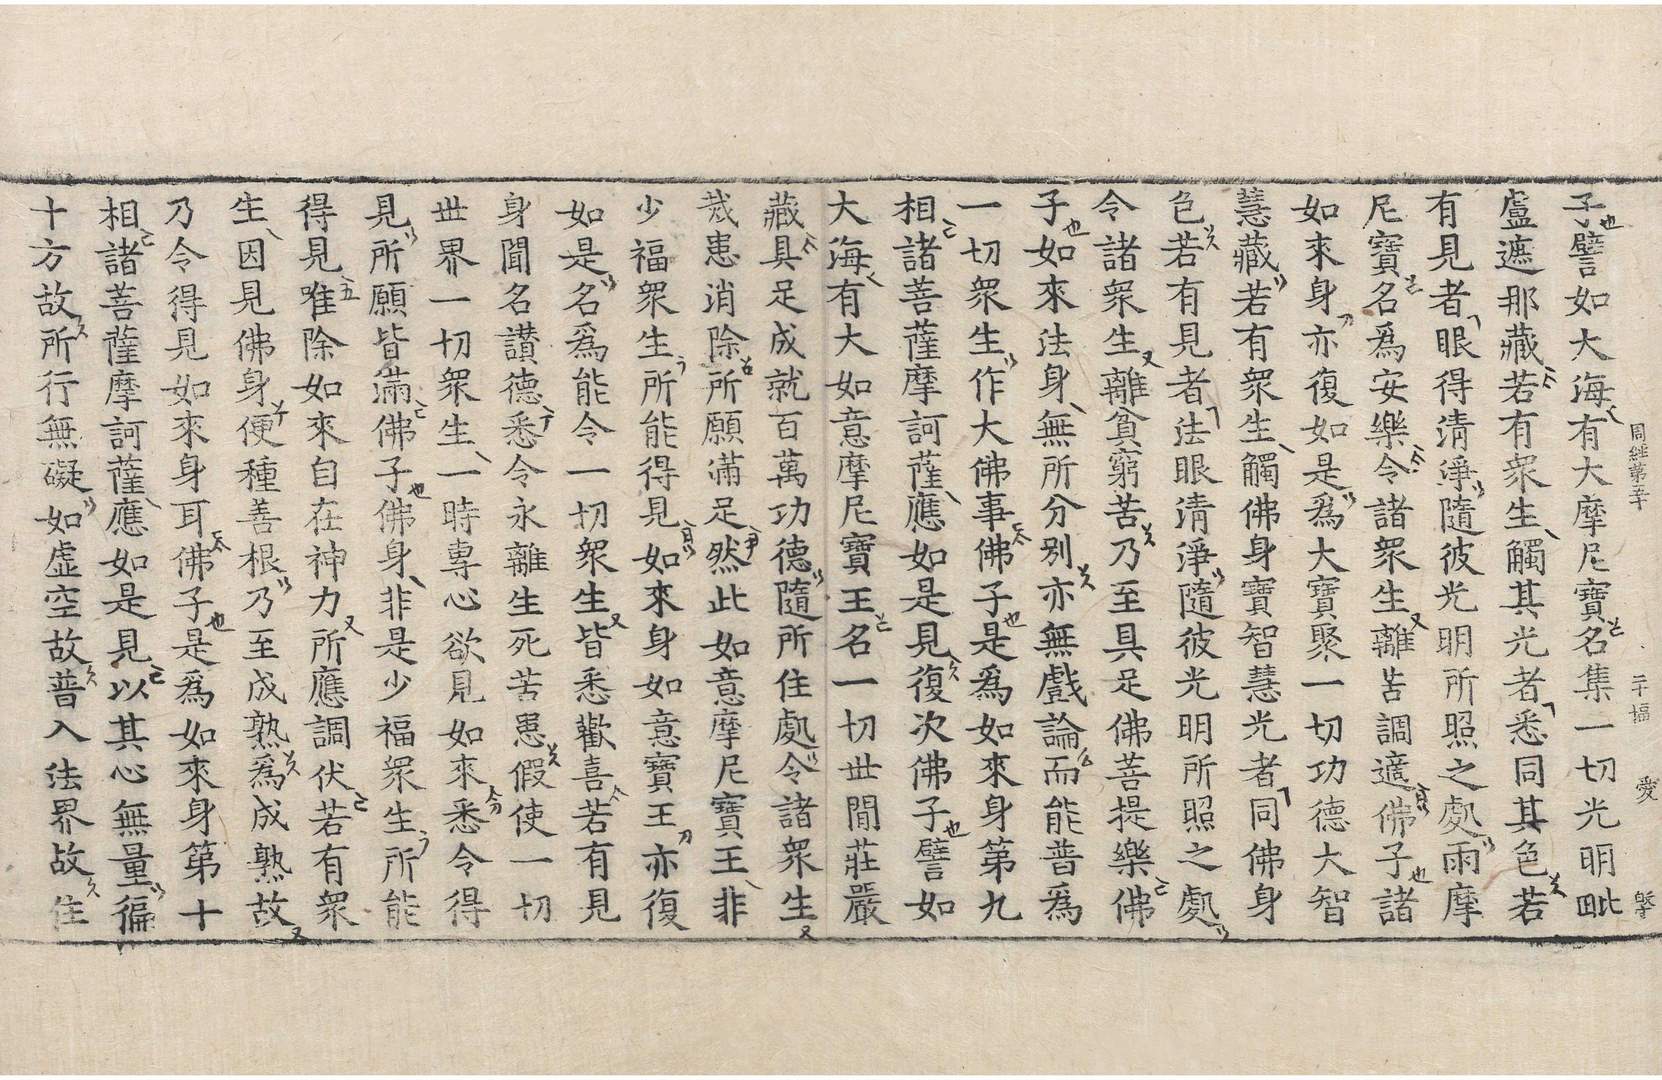 周經第三十 二十幅 愛 擊
子譬如大海有大摩尼寶名集一切光明毗
盧遮那藏若有衆生觸其光者悉同其色若
有見者眼得清淨隨彼光明所照之處雨摩
尼寶名爲安樂令諸衆生離苦調適佛子諸
如來身亦復如是爲大寶聚一切功德大智
慧藏若有衆生觸佛身寶智慧光者同佛身
色若有見者法眼清淨隨彼光明所照之處
令諸衆生離貧窮苦乃至具足佛菩提樂佛
子如來法身無所分別亦無戲論而能普爲
一切衆生作大佛事佛子是爲如來身第九
相諸菩薩摩訶薩應如是見復次佛子譬如
大海有大如意摩尼寶王名一切世間莊嚴
藏具足成就百萬功德隨所住處令諸衆生
災患消除所願滿足然此如意摩尼寶王非
少福衆生所能得見如來身如意寶王亦復
如是名爲能令一切衆生皆悉歡喜若有見
身聞名讚德悉令永離生死苦患假使一切
世界一切衆生一時專心欲見如來悉令得
見所願皆滿佛子佛身非是少福衆生所能
得見唯除如來自在神力所應調伏若有衆
生因見佛身便種善根乃至成熟爲成熟故
乃令得見如來身耳佛子是爲如來身第十
相諸菩薩摩訶薩應如是見以其心無量徧
十方故所行無礙如虛空故普入法界故住